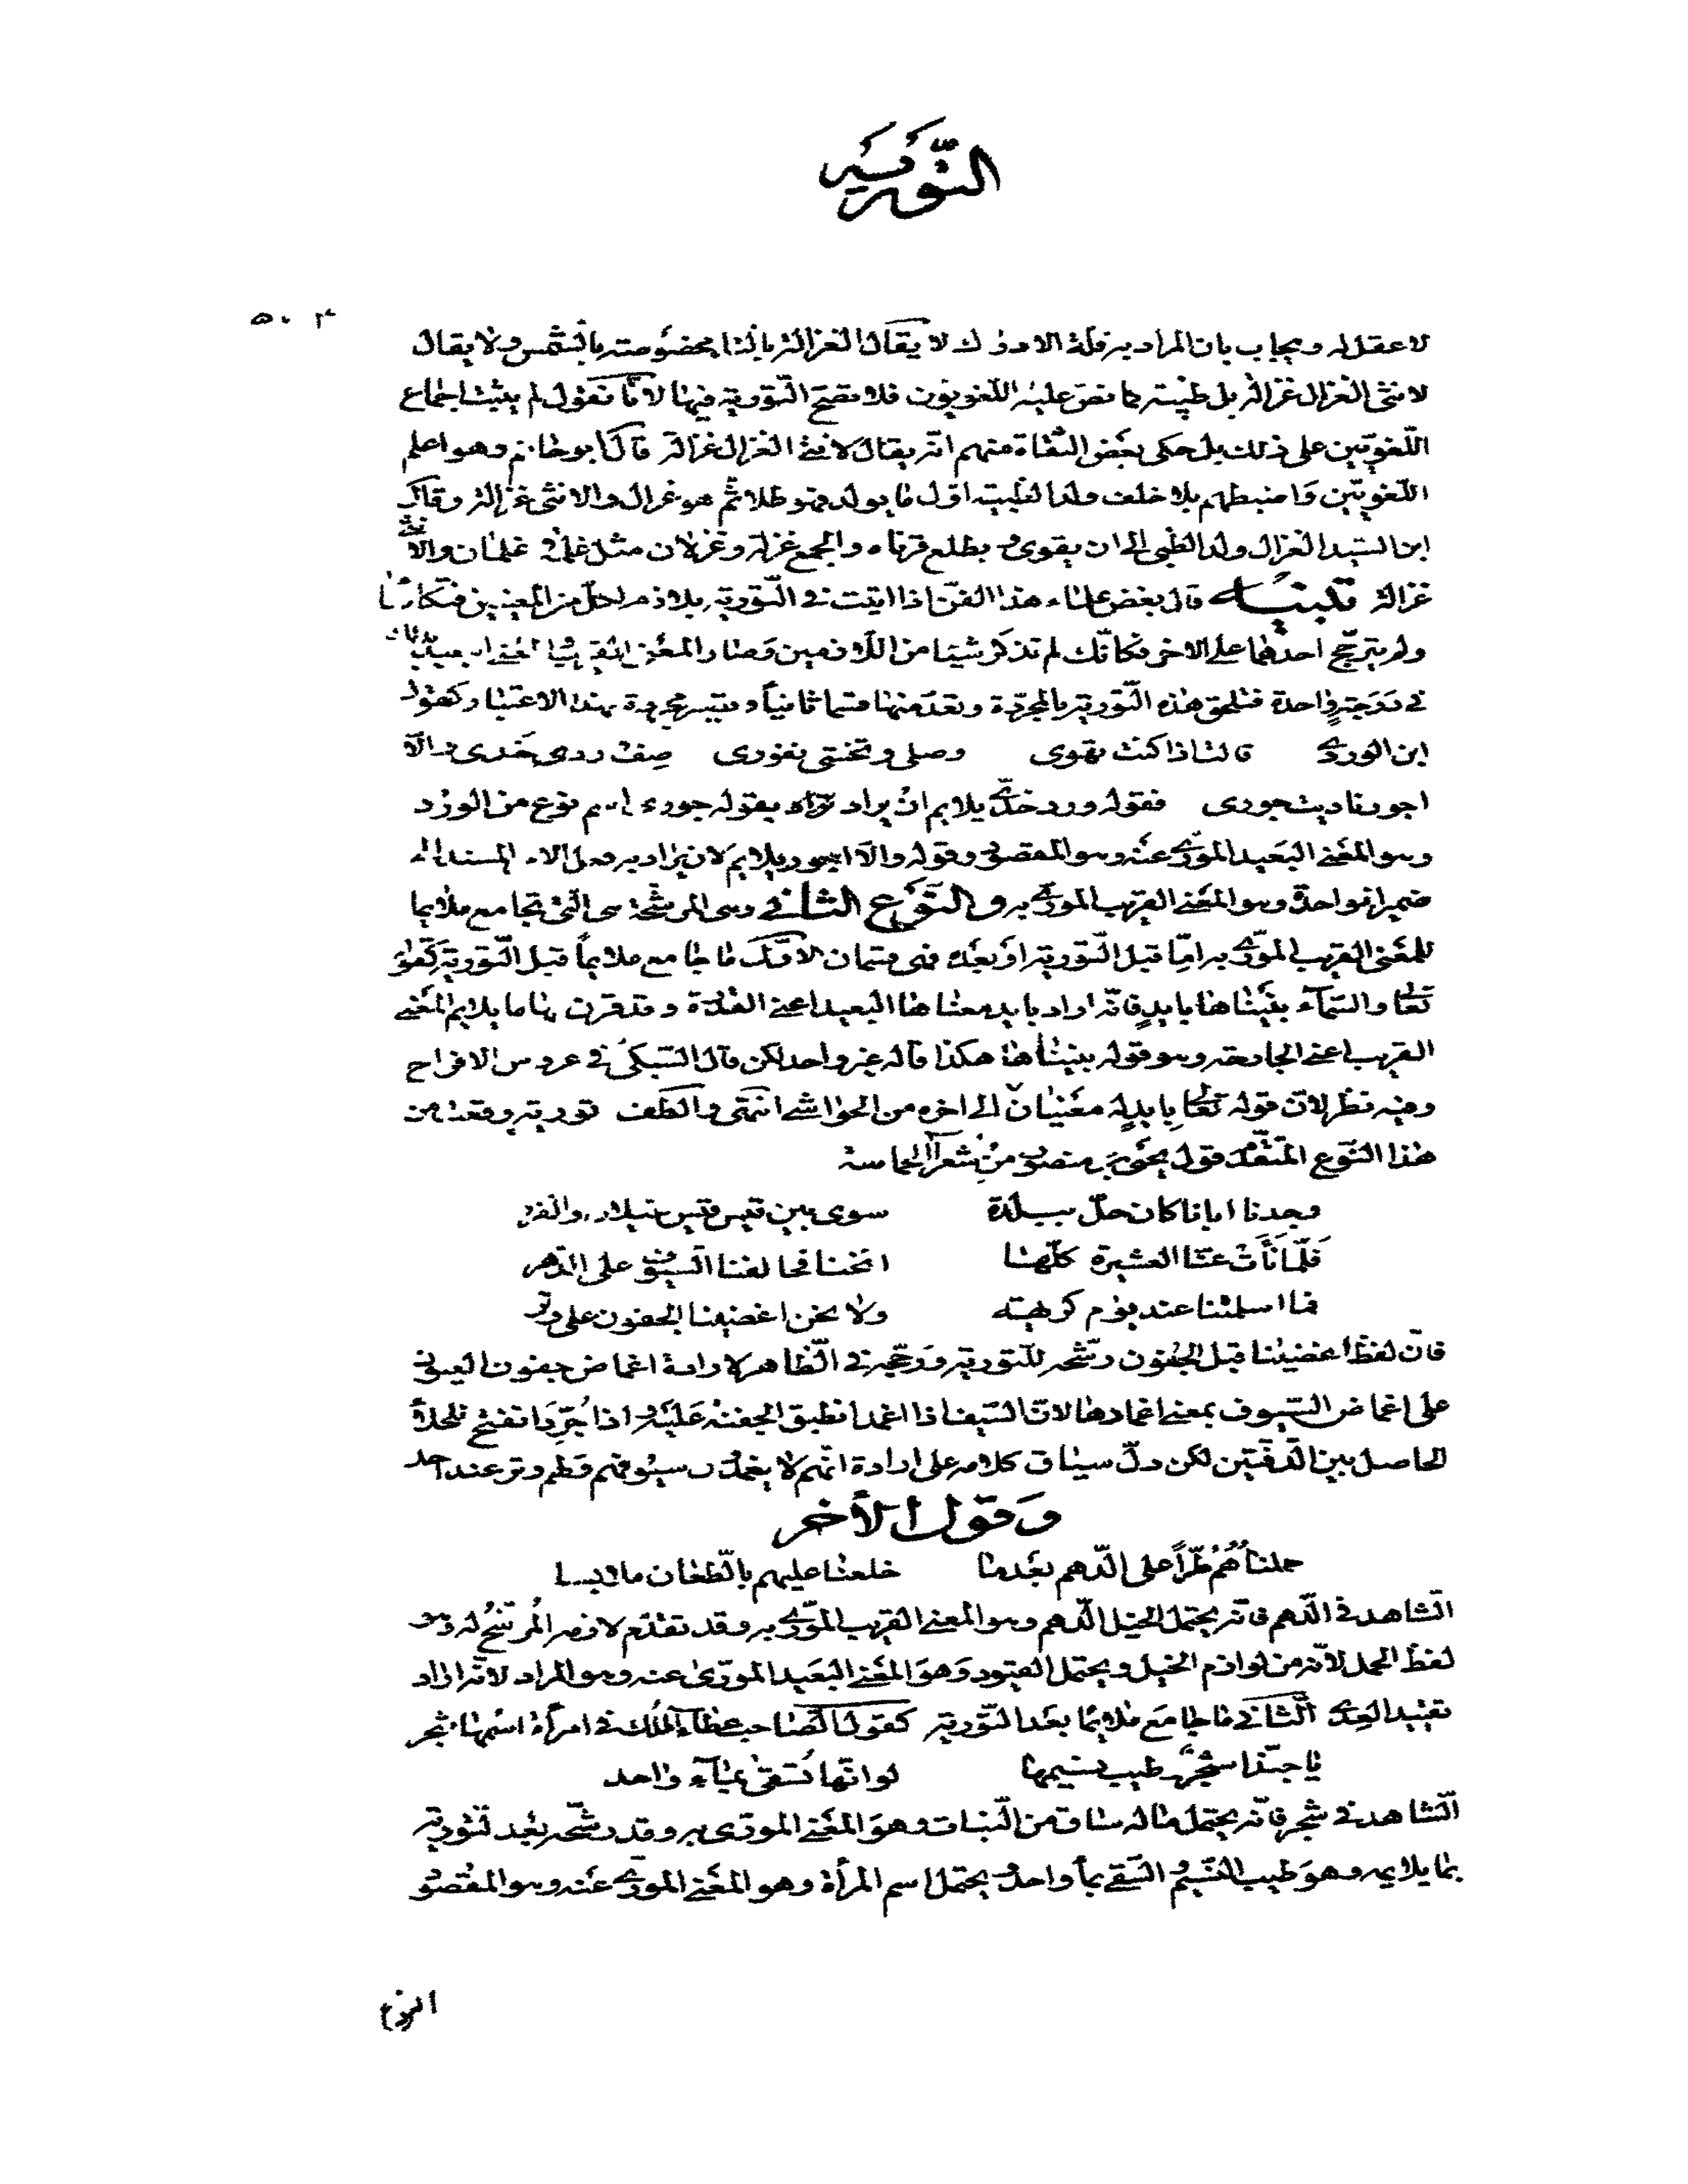 التورية
٥٠٤
لا عقل له ويجاب بان المراد به قلة الادراك لا يقال الغزالة بالتا مخصوصة بالشمس ولا يقال
لانثى الغزال غزالة بل ظبية كما نص عليه اللغويون فلا تصح التورية فيها لانا نقول لم يثبت اجماع
اللغويين على ذلك بل حكى بعض الثقاة منهم انه يقال لانثى الغزال غزالة قال ابو حاتم وهو اعلم
اللغويين واضبطهم بلا خلف ولد الظبية اول ما يولد فهو طلا ثم هو غزال والانثى غزالة وقال
ابن السيد الغزال ولد الظبي الى ان يقوى و يطلع قرناه والجمع غزلة وغزلان مثل غلمة غلمان والانثى
غزالة تنبيه قال بعض علماء هذا الفن اذا اتيت فى التورية بلازم لكل من المعنيين فتكافئا
ولم يترجح احدهما على الاخر فكانك لم تذكر شيئا من اللازمين وصار المعنى القريب
فى درجة واحدة فتلحق هذه التورية بالمجردة وتعد منها قسما ثانيا وتتيسر مجردة بهذا الاعتبار كقول
ابن الوردى قالت اذا كنت تهوى وصلى وتخشى نفورى صف ورد خدى والا
اجور ناديت جورى فقوله ورد خدى يلايم ان يراد بقوله جورى اسم نوع من الورد
وهو المعنى البعيد المورى عنه وهو المقصود وقوله والا اجور يلايم لان يراد به فعل الامر المسند الى
ضمير الواحدة وهو المعنى القريب المورى به والنوع الثانى وهى المرشحة هى التى تجامع ملايما
للمعنى القريب المورى به اما قبل التورية او بعده فهى قسمان الاول ما جامع ملايما قبل التورية كقوله
تعالى والسماء بنيناها بايد فانه اراد بايد معناها البعيد اعنى القدرة وقد قرن بها ما يلايم المعنى
القريب اعنى الجارحة وهو قوله بنيناها هكذا قاله غير واحد لكن قال السبكى فى عروس الافراح
وفيه نظر لان قوله تعالى بايد له معنيان الى اخره من الحواشى انتهى والطف تورية وقعت من
هذا النوع المتقدم قول يحيى بن منصور من شعراء الحماسة
وجدنا ابانا كان حل ببلدة سوى بين قيس قيس عيلان والفزر
فلما نأت عنا العشيرة كلها انخنا فحالفنا السيوف على الدهر
فما اسلمتنا عند يوم كريهة ولا نحن اغضينا الجفون على وتر
فان لفظ اغضينا قبل الجفون رشحه للتورية ورجحه فى الظاهر لارادة اغماض جفون العيون
على اغماض السيوف بمعنى اغمادها لان السيف اذا اغمد انطبق الجفن عليه واذا جرد انفتح للخلاء
الحاصل بين الدفتين لكن دل سياق كلامه على ارادة انهم لا يغمدون سيوفهم ولهم وتر عند احد
وقول الآخر
حملناهم طرا على الدهم بعدما خلعنا عليهم بالطعان ملابسا
الشاهد فى الدهم فانه يحتمل الخيل الدهم وهو المعنى القريب المورى به وقد تقدم لازمه المرشح له وهو
لفظ الحمل لانه من لوازم الخيل ويحتمل القيود وهو المعنى البعيد المورى عنه وهو المراد لانه اراد
تقييد العدى الثانى ما جامع ملايما بعد التورية كقول الصاحب عطاء الملك فى امرأة اسمها شجر
يا حبذا شجر وطيب نسيمها لو انها تسقى بماء واحد
الشاهد فى شجر فانه يحتمل ما له ساق من النبات وهو المعنى المورى به وقد رشحه بعد تورية
بما يلايمه وهو طيب النسيم و السقى بماء واحد ويحتمل اسم المرأة وهو المعنى المورى عنه وهو المقصود
النوع